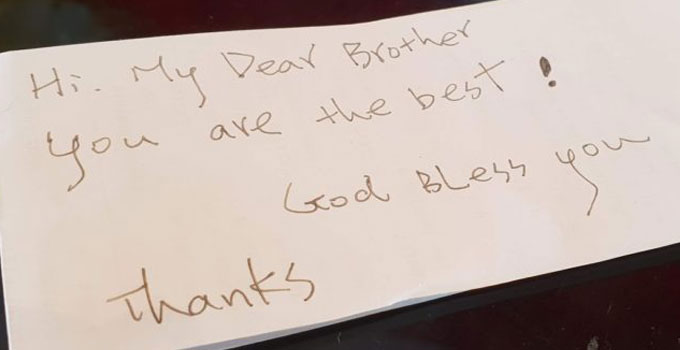 Hi. My Dear Brother
You are the best !
God Bless you
Thanks